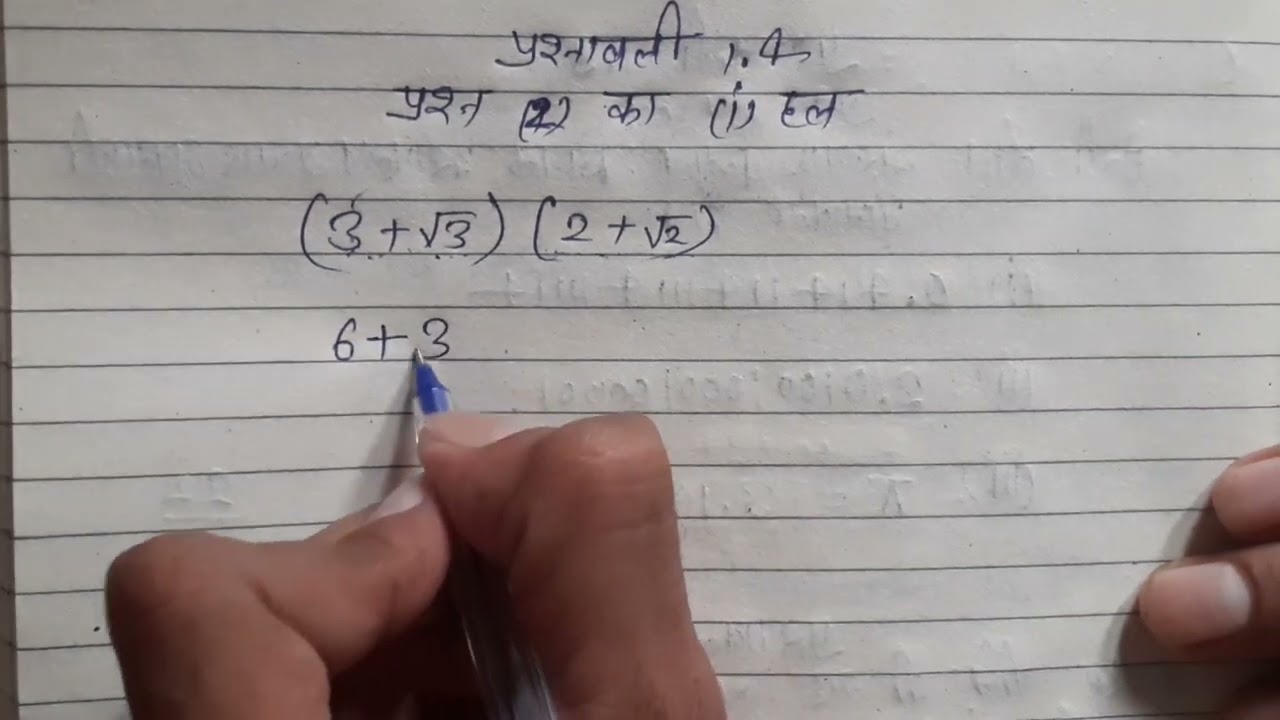 प्रश्नावली 1.4
प्रश्न (2) का (i) हल
(3 + √3) (2 + √2)
6 + 3